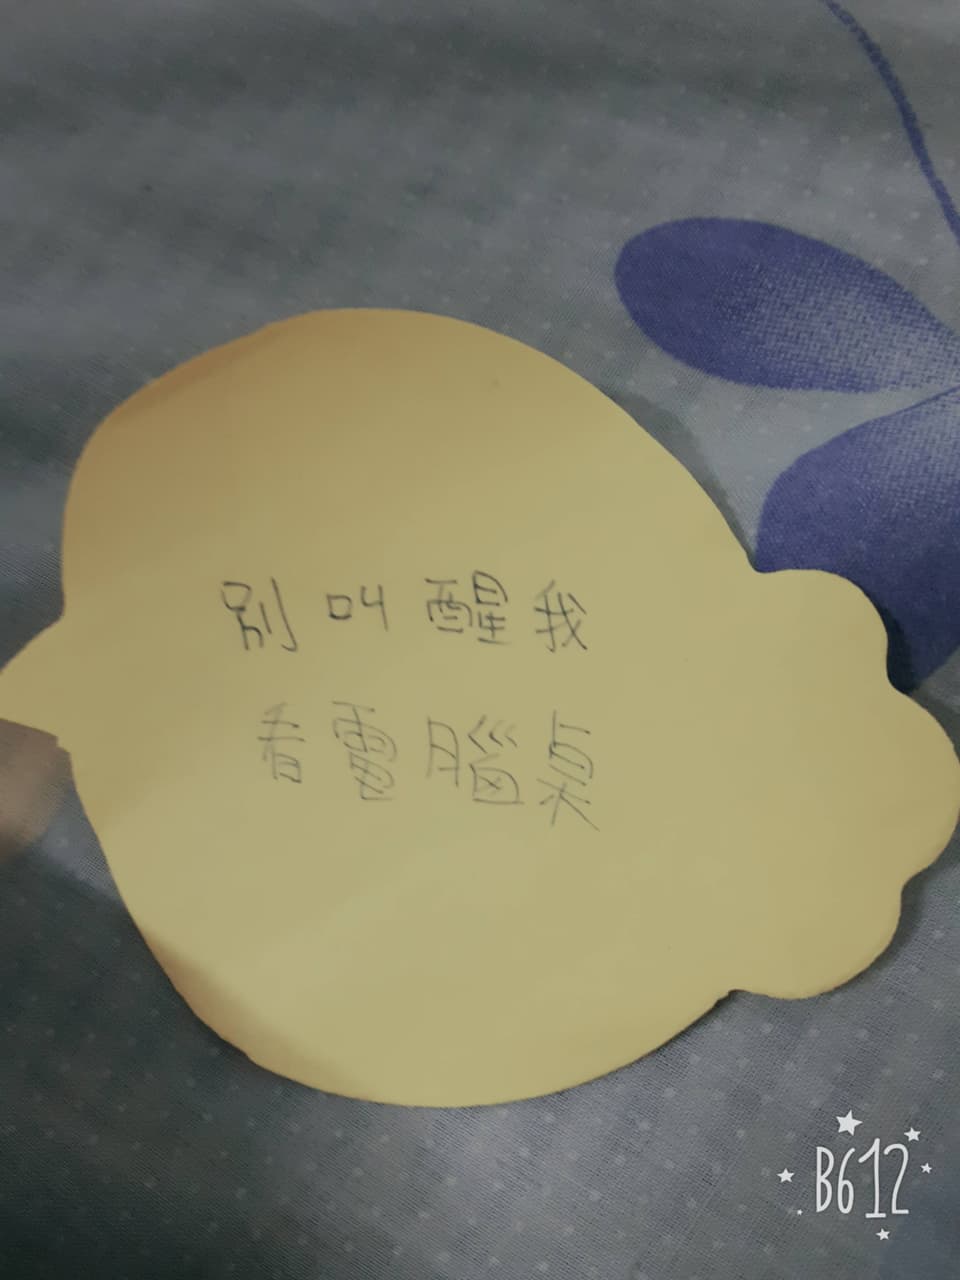 別叫醒我
看電腦桌
B612